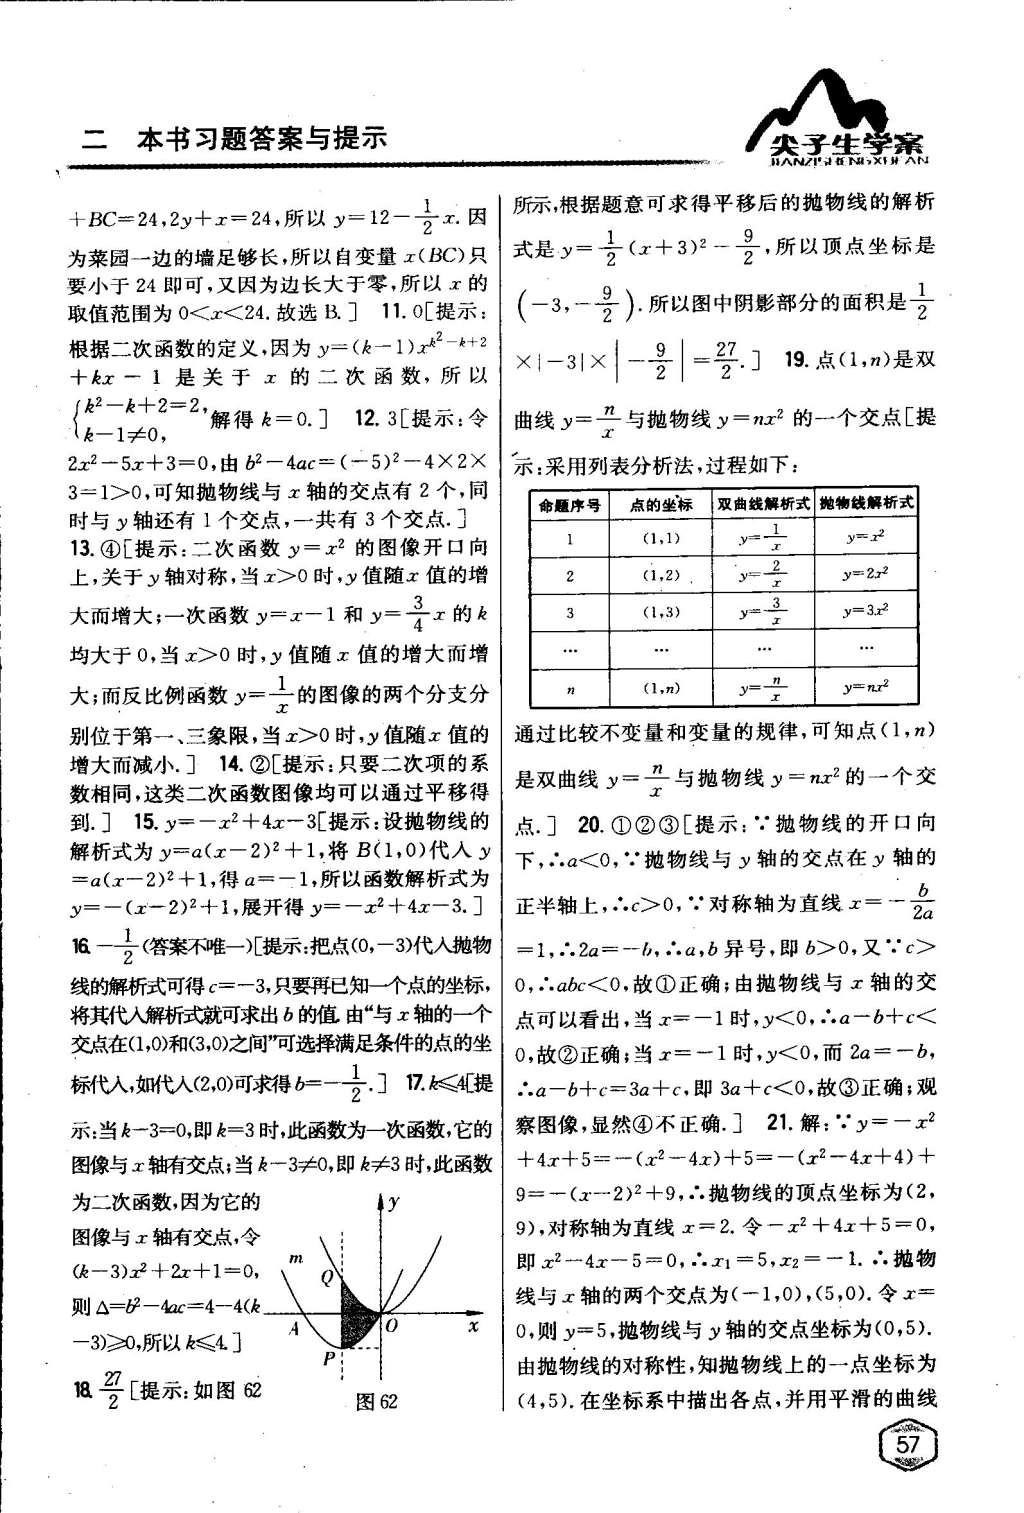 二 本书习题答案与提示
尖子生学案
JIANZISHENGXUEAN
+BC=24,2y+x=24,所以 y=12-1/2x. 因
为菜园一边的墙足够长,所以自变量 x(BC)只
要小于 24 即可,又因为边长大于零,所以 x 的
取值范围为 0<x<24. 故选 B.] 11. 0[提示:
根据二次函数的定义,因为 y=(k-1)x^(k²-k+2)
+kx-1 是关于 x 的二次函数,所以
{k²-k+2=2, k-1≠0, 解得 k=0.] 12. 3[提示:令
2x²-5x+3=0,由 b²-4ac=(-5)²-4×2×
3=1>0,可知抛物线与 x 轴的交点有 2 个,同
时与 y 轴还有 1 个交点,一共有 3 个交点.]
13. ④[提示:二次函数 y=x² 的图像开口向
上,关于 y 轴对称,当 x>0 时,y 值随 x 值的增
大而增大;一次函数 y=x-1 和 y=3/4x 的 k
均大于 0,当 x>0 时,y 值随 x 值的增大而增
大;而反比例函数 y=1/x 的图像的两个分支分
别位于第一、三象限,当 x>0 时,y 值随 x 值的
增大而减小.] 14. ②[提示:只要二次项的系
数相同,这类二次函数图像均可以通过平移得
到.] 15. y=-x²+4x-3[提示:设抛物线的
解析式为 y=a(x-2)²+1,将 B(1,0)代入 y
=a(x-2)²+1,得 a=-1,所以函数解析式为
y=-(x-2)²+1,展开得 y=-x²+4x-3.]
16. -1/2(答案不唯一)[提示:把点(0,-3)代入抛物
线的解析式可得 c=-3,只要再已知一个点的坐标,
将其代入解析式就可求出 b 的值. 由“与 x 轴的一个
交点在(1,0)和(3,0)之间”可选择满足条件的点的坐
标代入,如代入(2,0)可求得 b=-1/2.] 17. k≤4[提
示:当 k-3=0,即 k=3 时,此函数为一次函数,它的
图像与 x 轴有交点;当 k-3≠0,即 k≠3 时,此函数
为二次函数,因为它的
图像与 x 轴有交点,令
(k-3)x²+2x+1=0,
则 △=b²-4ac=4-4(k
-3)≥0,所以 k≤4.]
18. 27/2[提示:如图 62
y
m
Q
A
O
x
P
图 62
所示,根据题意可求得平移后的抛物线的解析
式是 y=1/2(x+3)²-9/2,所以顶点坐标是
(-3,-9/2). 所以图中阴影部分的面积是 1/2
×|-3|×|-9/2|=27/2.] 19. 点(1,n)是双
曲线 y=n/x 与抛物线 y=nx² 的一个交点[提
示:采用列表分析法,过程如下:
命题序号 点的坐标 双曲线解析式 抛物线解析式
1 (1,1) y=1/x y=x²
2 (1,2) y=2/x y=2x²
3 (1,3) y=3/x y=3x²
… … … …
n (1,n) y=n/x y=nx²
通过比较不变量和变量的规律,可知点(1,n)
是双曲线 y=n/x 与抛物线 y=nx² 的一个交
点.] 20. ①②③[提示:∵抛物线的开口向
下,∴a<0,∵抛物线与 y 轴的交点在 y 轴的
正半轴上,∴c>0,∵对称轴为直线 x=-b/2a
=1,∴2a=-b,∴a,b 异号,即 b>0,又∵c>
0,∴abc<0,故①正确;由抛物线与 x 轴的交
点可以看出,当 x=-1 时,y<0,∴a-b+c<
0,故②正确;当 x=-1 时,y<0,而 2a=-b,
∴a-b+c=3a+c,即 3a+c<0,故③正确;观
察图像,显然④不正确.] 21. 解:∵y=-x²
+4x+5=-(x²-4x)+5=-(x²-4x+4)+
9=-(x-2)²+9,∴抛物线的顶点坐标为(2,
9),对称轴为直线 x=2. 令-x²+4x+5=0,
即 x²-4x-5=0,∴x₁=5,x₂=-1. ∴抛物
线与 x 轴的两个交点为(-1,0),(5,0). 令 x=
0,则 y=5,抛物线与 y 轴的交点坐标为(0,5).
由抛物线的对称性,知抛物线上的一点坐标为
(4,5). 在坐标系中描出各点,并用平滑的曲线
57